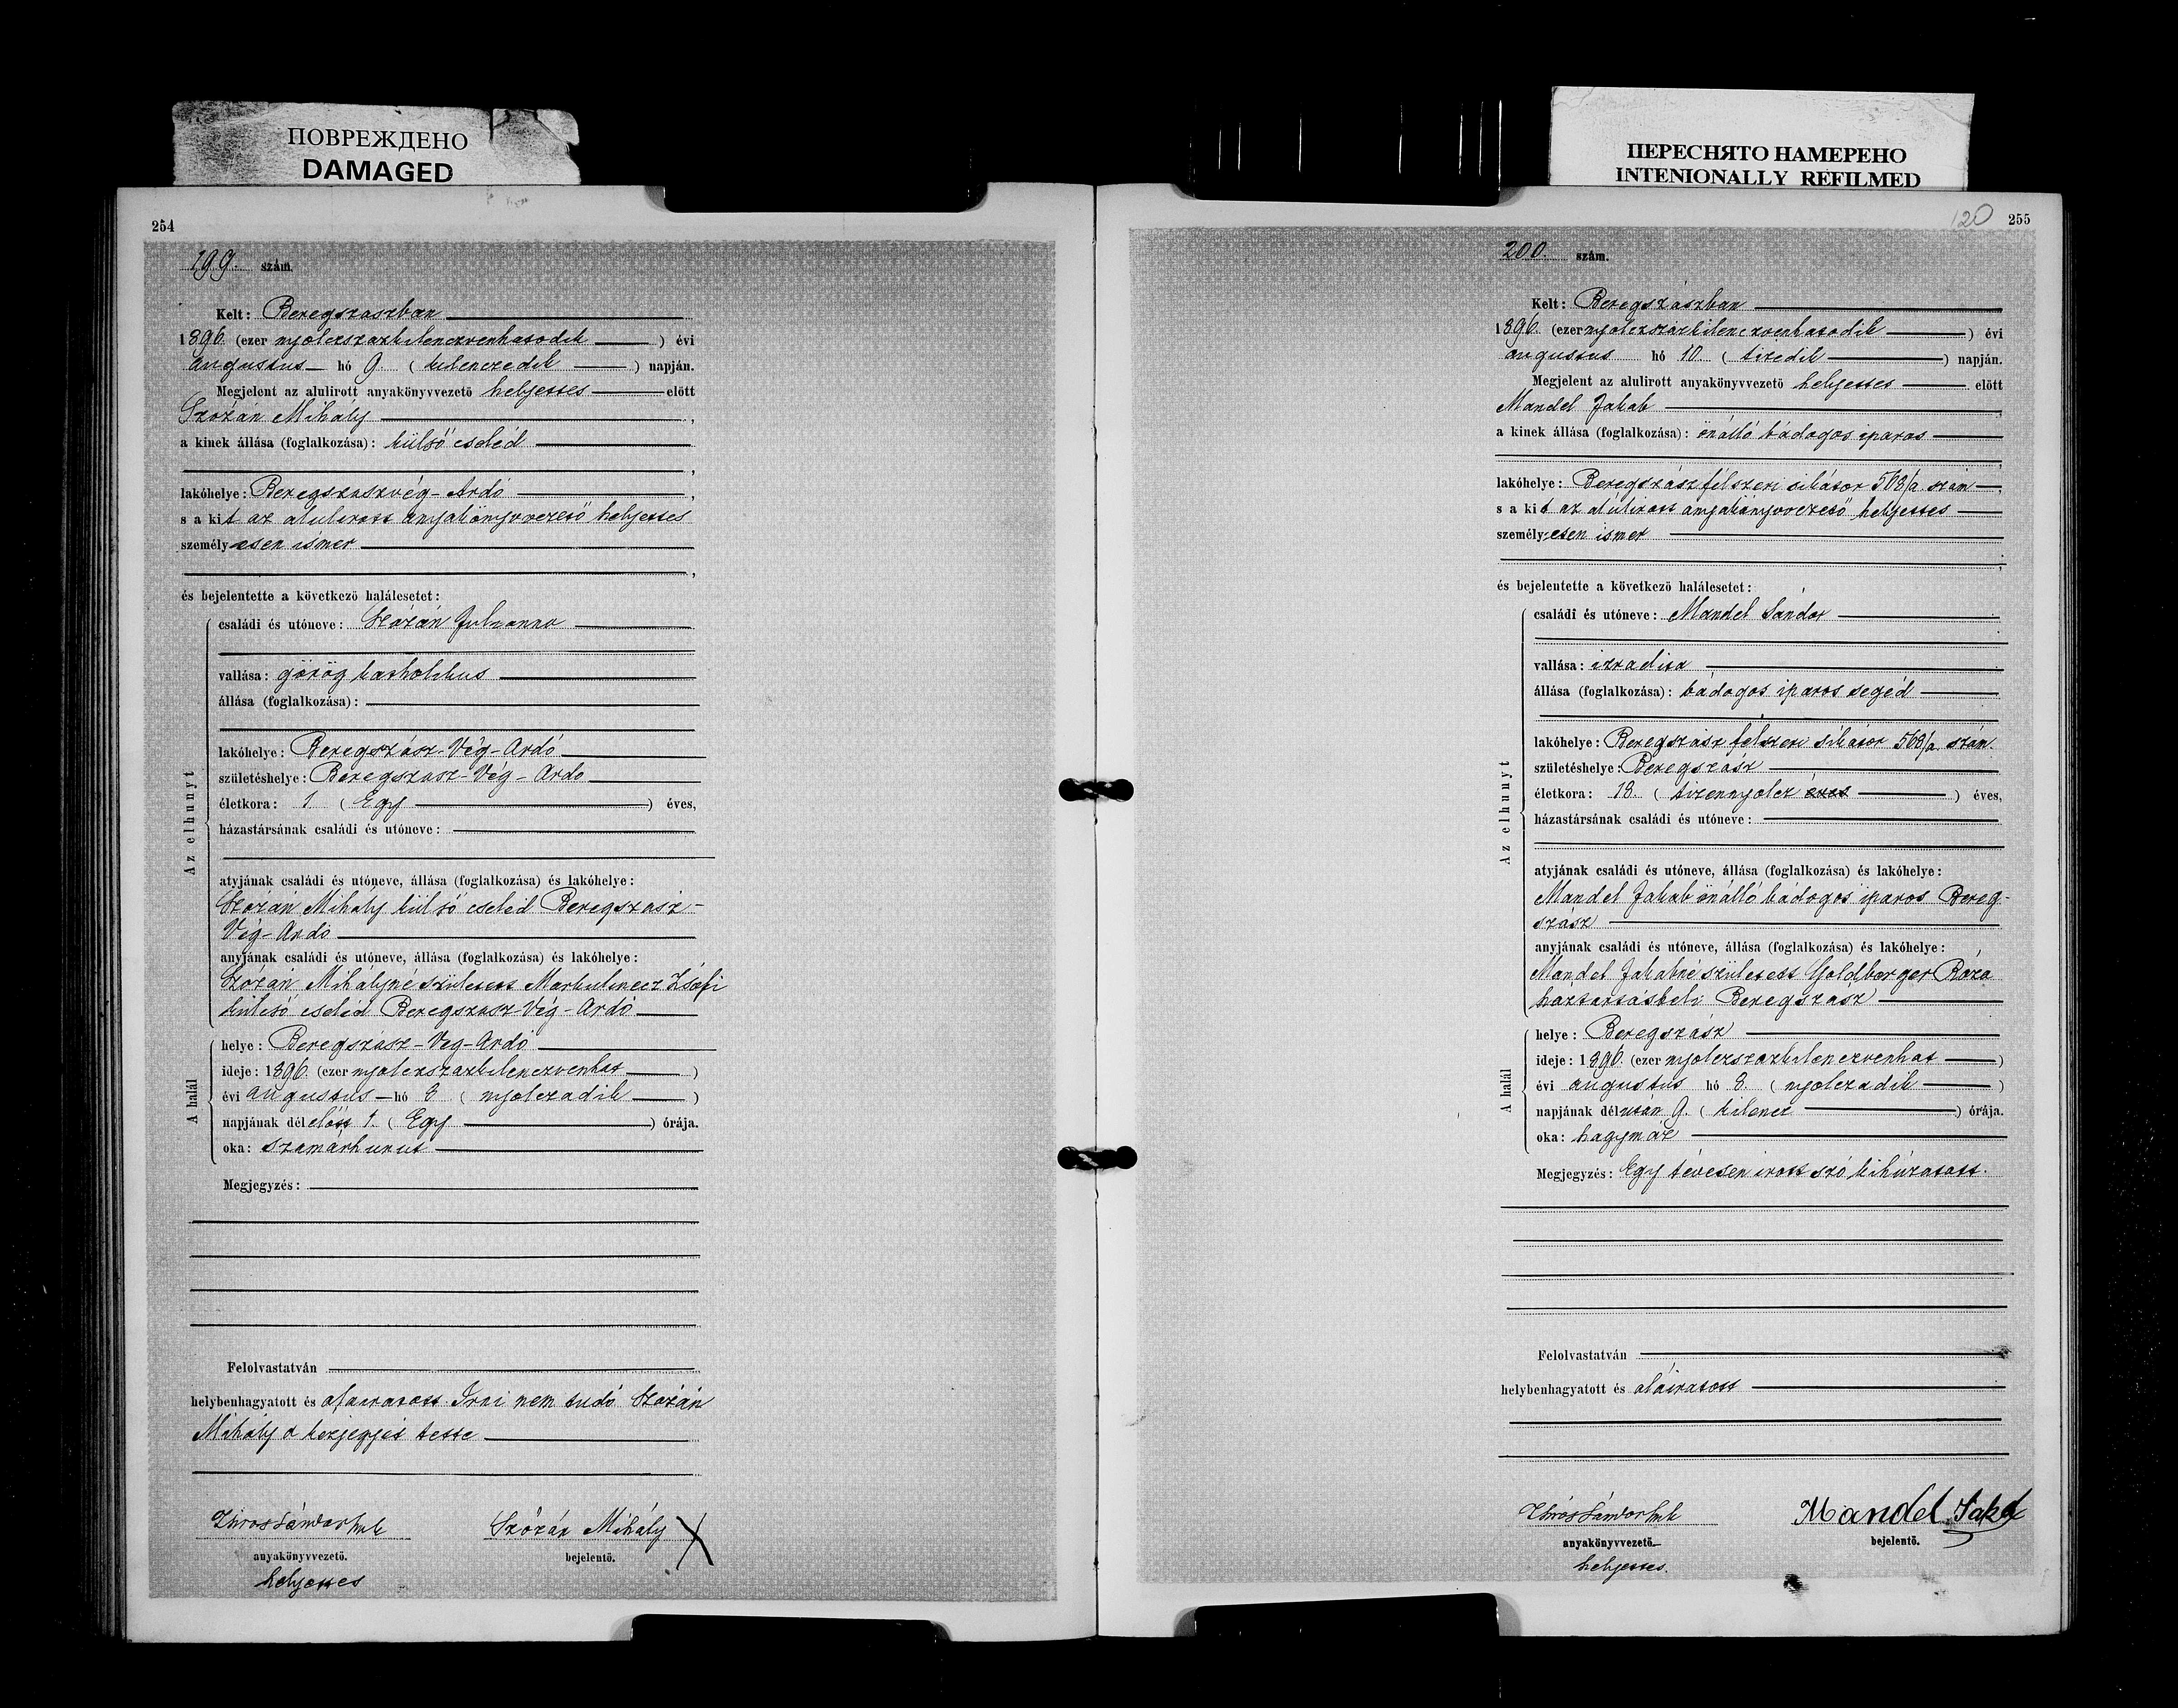 ПОВРЕЖДЕНО
DAMAGED
ПЕРЕСНЯТО НАМЕРЕНО
INTENIONALLY REFILMED
254
199. szám.
Kelt: Beregszaszban
1896. (ezer nyolczszazkilenczvenhatodik ) évi
augustus hó 9. ( kilenczedik ) napján.
Megjelent az alulirott anyakönyvvezető helyettes előtt
Szózán Mihály ,
a kinek állása (foglalkozása): külső cseléd
,
lakóhelye: Beregszaszvég-Ardó ,
s a kit az alulirott anyakönyvvezető helyettes
személyesen ismer
,
és bejelentette a következő halálesetet:
Az elhunyt
családi és utóneve: Szózán Julianna
vallása: görög katholikus
állása (foglalkozása):
lakóhelye: Beregszász-Vég-Ardó
születéshelye: Beregszasz-Vég-Ardo
életkora: 1 ( Egy ) éves,
házastársának családi és utóneve:
atyjának családi és utóneve, állása (foglalkozása) és lakóhelye:
Szózán Mihály külső cseléd Beregszasz-
Vég-Ardó
anyjának családi és utóneve, állása (foglalkozása) és lakóhelye:
Szózán Mihályné született Markulinecz Zsófi
külső cseléd Beregszasz-Vég-Ardó
A halál
helye: Beregszász-Veg-Ardó
ideje: 1896. (ezer nyolczszazkilenczvenhat )
évi augustus hó 8 ( nyolczadik )
napjának délelőtt 1. ( Egy ) órája.
oka: szamárhurut
Megjegyzés:
Felolvastatván
helybenhagyatott és aláiratott. Irni nem tudó Szózán
Mihály a kézjegyét tette
Szózán Mihály X
anyakönyvvezető. bejelentő.
helyettes
120 255
200. szám.
Kelt: Beregszászban
1896. (ezer nyolczszázkilenczvenhatodik ) évi
augustus hó 10. ( tizedik ) napján.
Megjelent az alulirott anyakönyvvezető helyettes előtt
Mandel Jakab ,
a kinek állása (foglalkozása): önálló bádogos iparos
,
lakóhelye: Beregszász félszeri sikátor 568/a. szám ,
s a kit az alúlirott anyakönyvvezető helyettes
személyesen ismer
,
és bejelentette a következő halálesetet:
Az elhunyt
családi és utóneve: Mandel Sándor
vallása: izraelita
állása (foglalkozása): bádogos iparos segéd
lakóhelye: Beregszász felszeri sikátor 568/a. szám.
születéshelye: Beregszász
életkora: 18. ( tizennyolcz éves ) éves,
házastársának családi és utóneve:
atyjának családi és utóneve, állása (foglalkozása) és lakóhelye:
Mandel Jakab önálló bádogos iparos Bereg-
szász
anyjának családi és utóneve, állása (foglalkozása) és lakóhelye:
Mandel Jakabné született Goldberger Róza
háztartásbeli Beregszász
A halál
helye: Beregszász
ideje: 1896. (ezer nyolczszazkilenczvenhat )
évi augustus hó 8. ( nyolczadik )
napjának délután 9. ( kilencz ) órája.
oka: hagymáz
Megjegyzés: Egy tévesen irott szó kihúzatott.
Felolvastatván
helybenhagyatott és aláiratott
Mandel Jakab
anyakönyvvezető bejelentő.
helyettes.